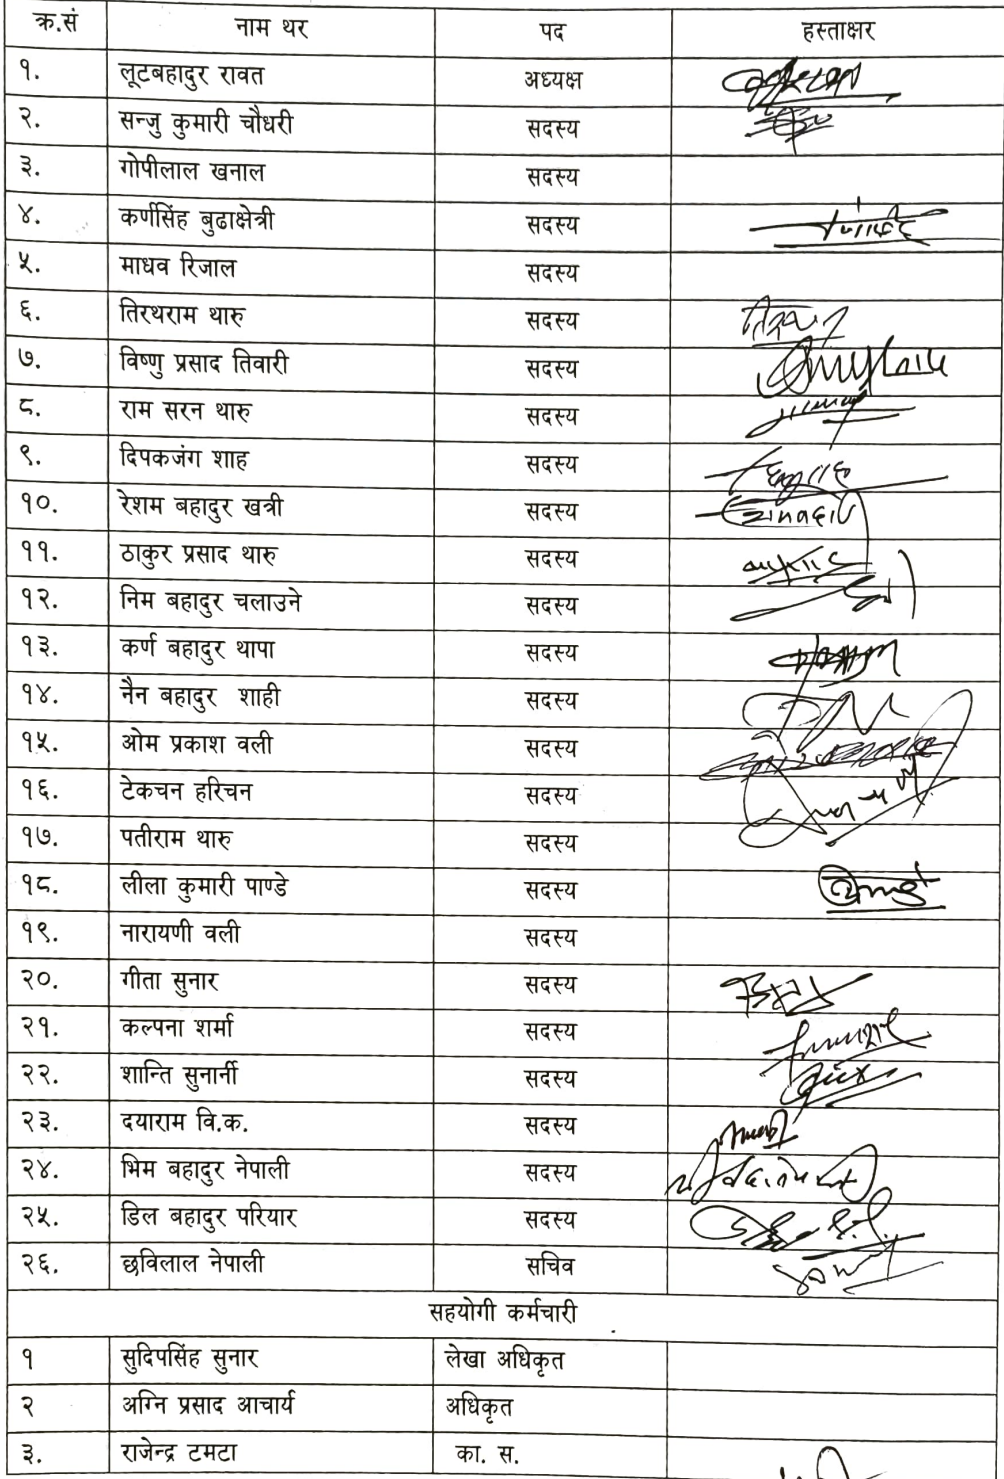 क्र.सं नाम थर पद हस्ताक्षर
१. लूटबहादुर रावत अध्यक्ष
२. सन्जु कुमारी चौधरी सदस्य
३. गोपीलाल खनाल सदस्य
४. कर्णसिंह बुढाक्षेत्री सदस्य
५. माधव रिजाल सदस्य
६. तिरथराम थारु सदस्य
७. विष्णु प्रसाद तिवारी सदस्य
८. राम सरन थारु सदस्य
९. दिपकजंग शाह सदस्य
१०. रेशम बहादुर खत्री सदस्य
११. ठाकुर प्रसाद थारु सदस्य
१२. निम बहादुर चलाउने सदस्य
१३. कर्ण बहादुर थापा सदस्य
१४. नैन बहादुर शाही सदस्य
१५. ओम प्रकाश वली सदस्य
१६. टेकचन हरिचन सदस्य
१७. पतीराम थारु सदस्य
१८. लीला कुमारी पाण्डे सदस्य
१९. नारायणी वली सदस्य
२०. गीता सुनार सदस्य
२१. कल्पना शर्मा सदस्य
२२. शान्ति सुनार्नी सदस्य
२३. दयाराम वि.क. सदस्य
२४. भिम बहादुर नेपाली सदस्य
२५. डिल बहादुर परियार सदस्य
२६. छविलाल नेपाली सचिव
सहयोगी कर्मचारी
१ सुदिपसिंह सुनार लेखा अधिकृत
२ अग्नि प्रसाद आचार्य अधिकृत
३. राजेन्द्र टमटा का. स.